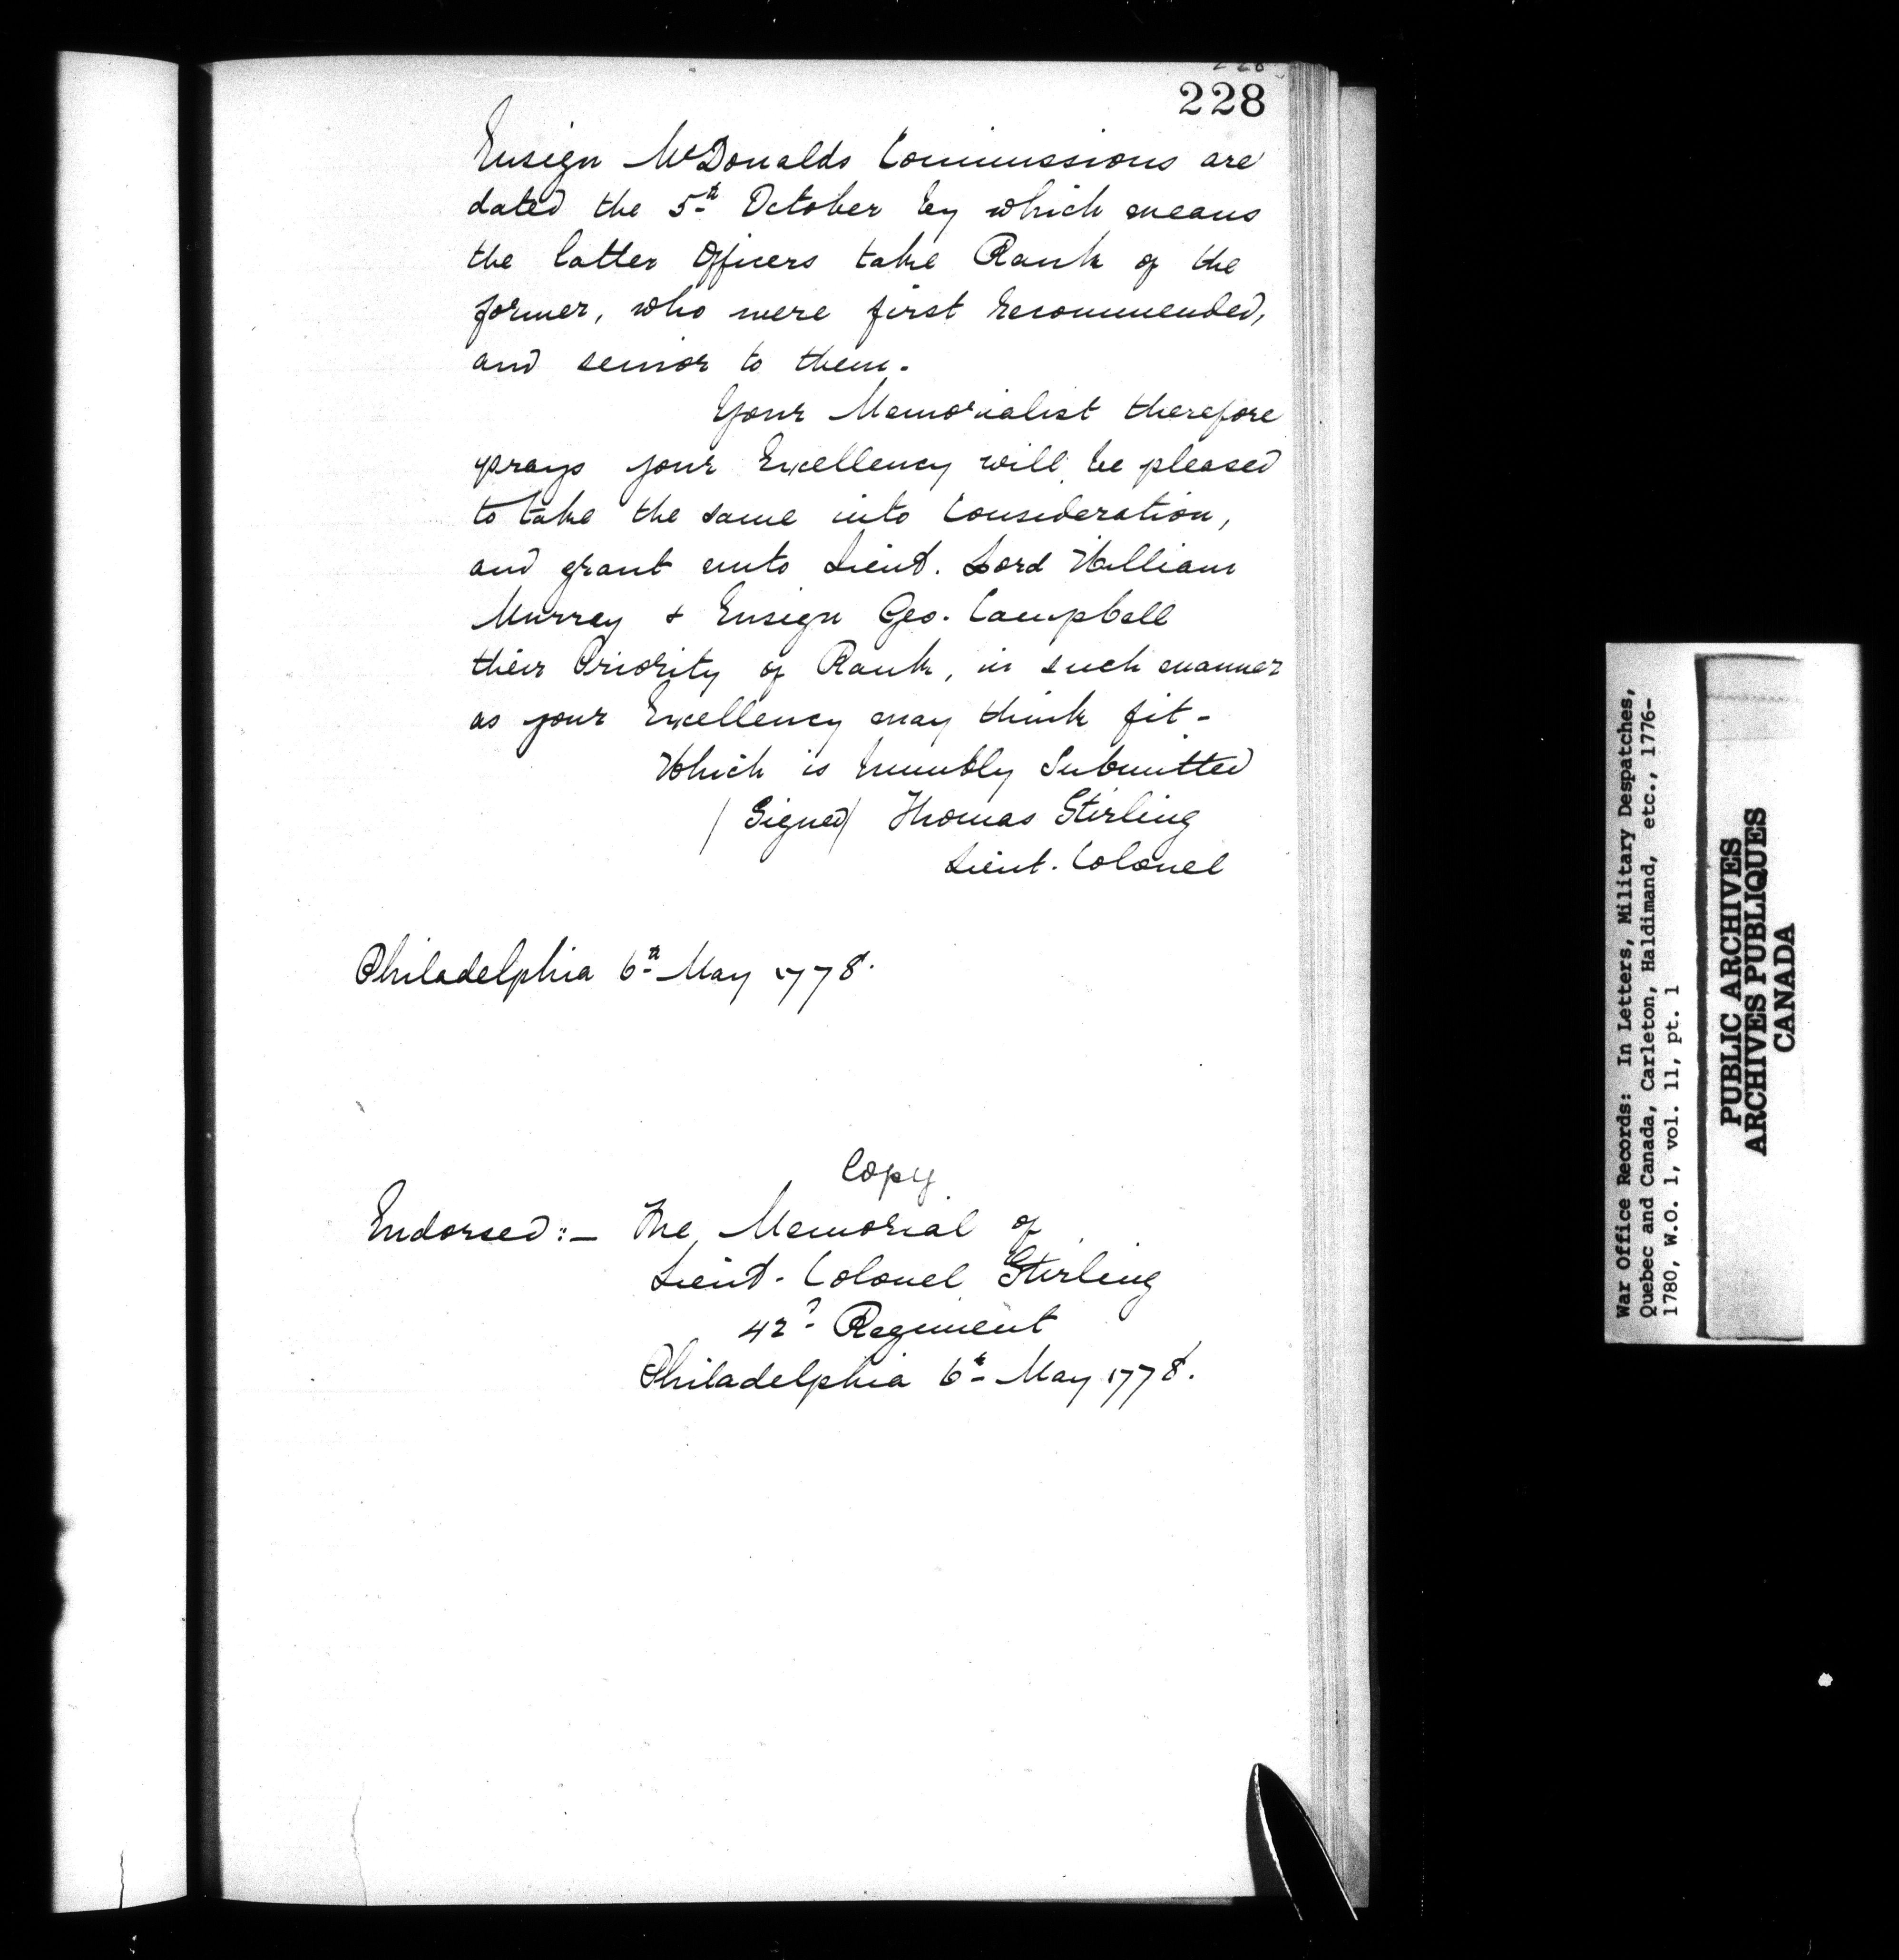 228
Ensign McDonalds Commissions are
dated the 5th October by which means
the latter Officers take Rank of the
former, who were first recommended,
and senior to them.
Your Memorialist therefore
prays your Excellency will be pleased
to take the same into Consideration,
and grant unto Lieut. Lord William
Murray & Ensign Geo. Campbell
their Priority of Rank, in such manner
as your Excellency may think fit-
Which is humbly Submitted
(Signed) Thomas Stirling
Lieut. Colonel
Philadelphia 6th May 1778.
Copy
Endorsed:- The Memorial of
Lieut. Colonel Stirling
42d Regiment
Philadelphia 6th May 1778.
War Office Records: In Letters, Military Despatches,
Quebec and Canada, Carleton, Haldimand, etc., 1776-
1780, W.O. 1, vol. 11, pt. 1
PUBLIC ARCHIVES
ARCHIVES PUBLIQUES
CANADA